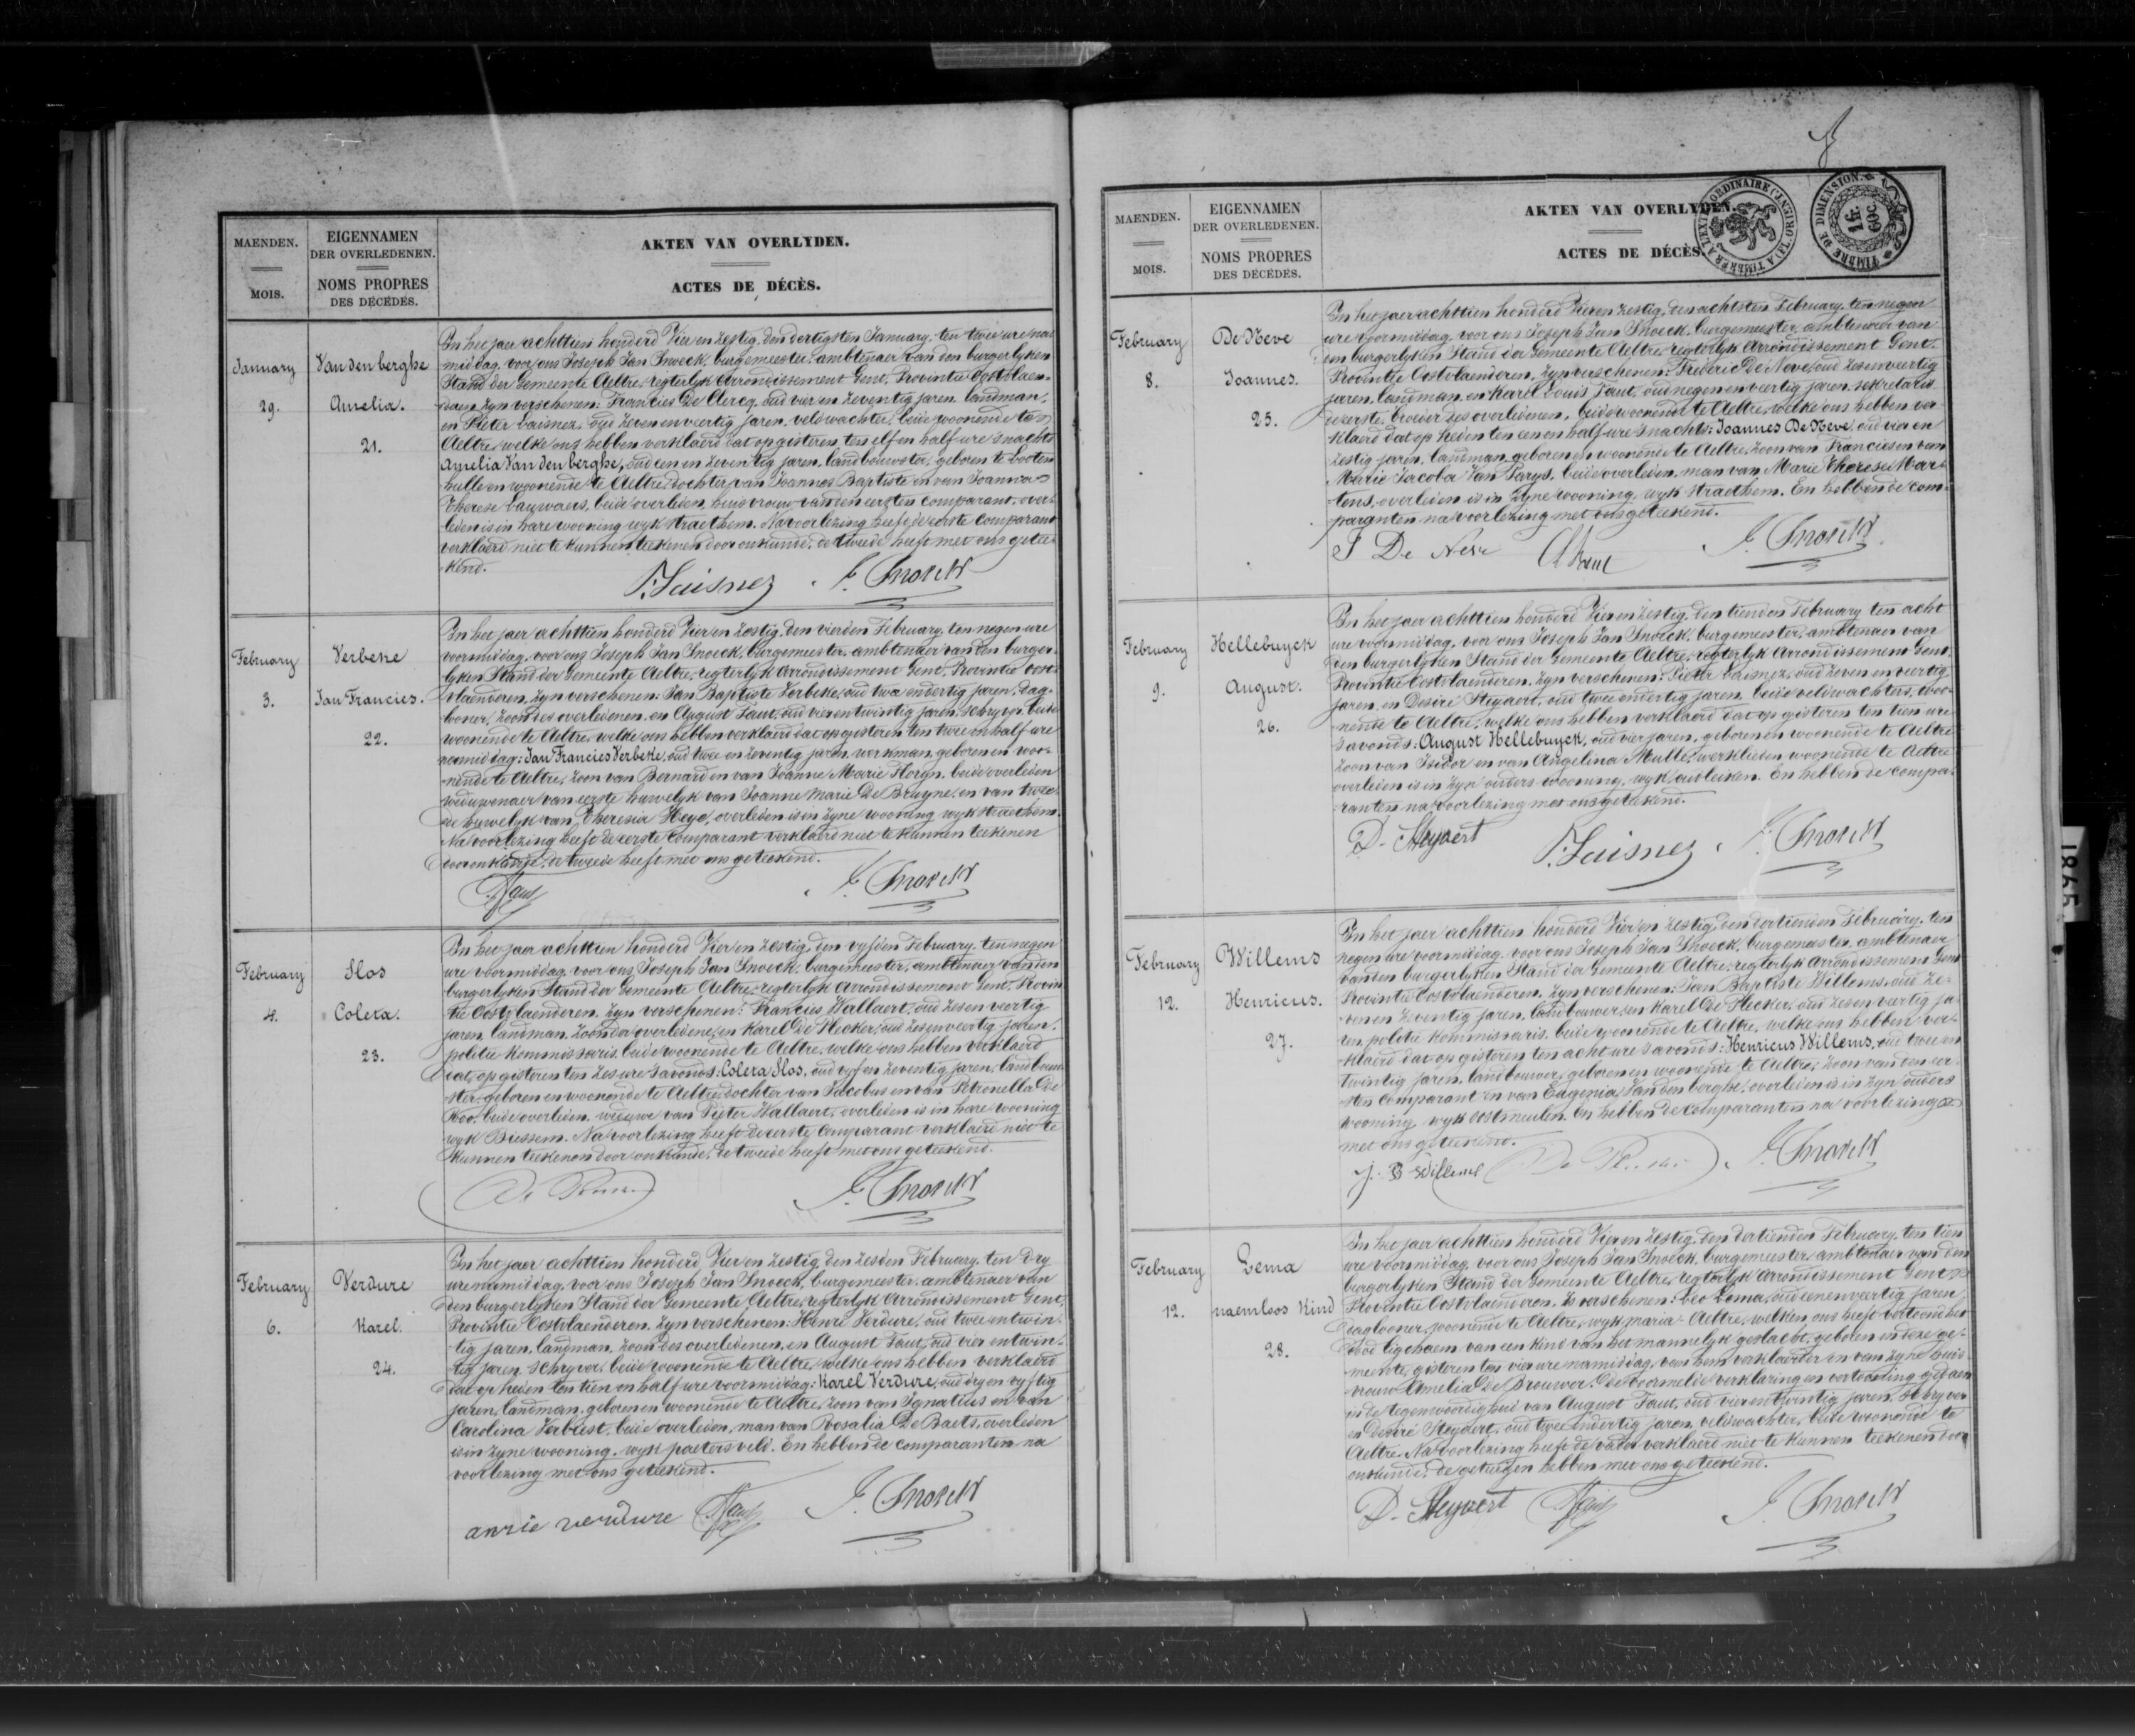 MAENDEN.
MOIS.
EIGENNAMEN
DER OVERLEDENEN.
NOMS PROPRES
DES DÉCÉDÉS.
AKTEN VAN OVERLYDEN.
ACTES DE DÉCÈS.
January
29.
Van den berghe
Amelia.
21.
In het jaer achttien honderd Vier en Zestig, den dertigsten January, ten twee ure na
middag, voor ons Joseph Jan Snoeck, burgemeester, ambtenaer van den burgerlyken
Stand der Gemeente Aeltre, regterlyk Arrondissement Gent, Provintie Oostvlaen-
deren zyn verschenen: Francies De Clercq, oud vier en zeventig jaren, landman,
en Pieter Laisnez, oud zeven en veertig jaren, veldwachter, beide woonende te
Aeltre, welke ons hebben verklaerd dat op gisteren ten elf en half ure snachts
Amelia Van den berghe, oud een en zeventig jaren, landbouwster, geboren te Looten
hulle en woonende te Aeltre, dochter van Joannes Baptiste en van Joanna
Therese Lauwaers, beide overleden, huisvrouw van den eersten comparant, over-
leden is in hare wooning wyk straethem. Na voorlezing heeft de eerste comparant
verklaerd niet te kunnen teekenen door onkunde, de tweede heeft met ons getee-
kend.
P. Laisnez J. Snoeck
February
3.
Verbeke
Jan Francies.
22.
In het jaer achttien honderd Vier en Zestig, den vierden February, ten negen ure
voormiddag, voor ons Joseph Jan Snoeck, burgemeester, ambtenaer van den burger-
lyken Stand der Gemeente Aeltre, regterlyk Arrondissement Gent, Provintie Oost-
vlaenderen, zyn verschenen: Jan Baptiste Verbeke, oud twee en dertig jaren, dag-
looner, zoon des overledenen, en August Taut, oud vier en twintig jaren, schryver, beide
woonende te Aeltre, welke ons hebben verklaerd dat op gisteren ten twee en half ure
namiddag: Jan Francies Verbeke, oud twee en zeventig jaren, werkman, geboren en woo-
nende te Aeltre, zoon van Bernard en van Joanne Marie Hergn, beide overleden
weduwnaer van eerste huwelyk van Joanne Marie De Bruyne, en van twee-
de huwelyk van Theresia Heye, overleden is in zyne wooning wyk straethem.
Na voorlezing heeft de eerste comparant verklaerd niet te kunnen teekenen
door onkunde, de tweede heeft met ons geteekend.
A Taut J. Snoeck
February
4.
Slos
Coleta.
23.
In het jaer achttien honderd Vier en Zestig, den vyfden February, ten negen
ure voormiddag, voor ons Joseph Jan Snoeck, burgemeester, ambtenaer van den
burgerlyken Stand der Gemeente Aeltre, regterlyk Arrondissement Gent, Provin
tie Oostvlaenderen, zyn verschenen: Francies Wallaert, oud zes en veertig
jaren, landman, zoon der overledene, en Karel De Plecker, oud zes en veertig jaren,
politie kommissaris, beide woonende te Aeltre, welke ons hebben verklaerd
dat, op gisteren ten zes ure savonds: Coleta Slos, oud vyf en zeventig jaren, landbouw-
ster, geboren en woonende te Aeltre, dochter van Jacobus en van Petronella De
Koo, beide overleden, weduwe van Pieter Wallaert, overleden is in hare wooning
wyk Biessem. Na voorlezing heeft de eerste comparant verklaerd niet te
kunnen teekenen door onkunde, de tweede heeft met ons geteekend.
De Plecker J. Snoeck
February
6.
Verdure
Karel.
24.
In het jaer achttien honderd Vier en Zestig, den zesden February, ten dry
ure namiddag, voor ons Joseph Jan Snoeck, burgemeester, ambtenaer van
den burgerlyken Stand der Gemeente Aeltre, regterlyk Arrondissement Gent,
Provintie Oostvlaenderen, zyn verschenen: Henri Verdure, oud twee en twin-
tig jaren, landman, zoon des overledenen, en August Taut, oud vier en twin-
tig jaren, schryver, beide woonende te Aeltre, welke ons hebben verklaerd
dat op heden ten tien en half ure voormiddag: Karel Verdure, oud dry en vyftig
jaren, landman, geboren en woonende te Aeltre, zoon van Ignatius en van
Carolina Verbiest, beide overleden, man van Rosalia De Baets, overleden
is in zyne wooning, wyk paetersveld. En hebben de comparanten na
voorlezing met ons geteekend.
anrie verdure A Taut J. Snoeck
MAENDEN.
MOIS.
EIGENNAMEN
DER OVERLEDENEN.
NOMS PROPRES
DES DÉCÉDÉS.
AKTEN VAN OVERLYDEN.
ACTES DE DÉCÈS.
TIMBRE DE DIMENSION.
1 fr.
60c.
February
8.
De Neve
Joannes.
25.
In het jaer achttien honderd Vier en Zestig, den achtsten February, ten negen
ure voormiddag, voor ons Joseph Jan Snoeck, burgemeester, ambtenaer van
den burgerlyken Stand der Gemeente Aeltre, regterlyk Arrondissement Gent,
Provintie Oostvlaenderen, zyn verschenen: Frederic De Neve, oud zes en veertig
jaren, landman, en Karel Louis Taut, oud negen en veertig jaren, sekretaris
de eerste, broeder des overledenen, beide woonende te Aeltre, welke ons hebben ver-
klaerd dat op heden ten een en half ure snachts: Joannes De Neve, oud vier en
zestig jaren, landman, geboren en woonende te Aeltre, zoon van Francies en van
Marie Jacoba Van Parys, beide overleden, man van Marie Therese Mar-
tens, overleden is in zyne wooning, wyk straethem. En hebben de com-
paranten na voorlezing met ons geteekend.
F De Neve J. Snoeck
February
9.
Hellebuyck
August.
26.
In het jaer achttien honderd Vier en Zestig, den tienden February, ten acht
ure voormiddag, voor ons Joseph Jan Snoeck, burgemeester, ambtenaer van
den burgerlyken Stand der Gemeente Aeltre, regterlyk Arrondissement Gent,
Provintie Oostvlaenderen, zyn verschenen: Pieter Laisnez, oud zeven en veertig
jaren, en Desiré Steyaert, oud twee en dertig jaren, beide veldwachters, woo-
nende te Aeltre, welke ons hebben verklaerd dat op gisteren ten tien ure
savonds: August Hellebuyck, oud vier jaren, geboren en woonende te Aeltre
zoon van Isidor en van Angelina Mulle, werklieden woonende te Aeltre
overleden is in zyn ouders wooning, wyk En hebben de compa-
ranten na voorlezing met ons geteekend.
D. Steyaert P. Laisnez J. Snoeck
February
12.
Willems
Henricus.
27.
In het jaer achttien honderd Vier en Zestig, den dertienden February, ten
negen ure voormiddag, voor ons Joseph Jan Snoeck, burgemeester, ambtenaer
van den burgerlyken Stand der Gemeente Aeltre, regterlyk Arrondissement Gent
Provintie Oostvlaenderen, zyn verschenen: Jan Baptiste Willems, oud ze-
ven en zeventig jaren, landbouwer, en Karel De Plecker, oud zes en veertig ja-
ren, politie kommissaris, beide woonende te Aeltre, welke ons hebben ver-
klaerd dat op gisteren ten acht ure savonds: Henricus Willems, oud twee en
twintig jaren, landbouwer, geboren en woonende te Aeltre, zoon van den eer-
sten comparant en van Eugenia Van den berghe, overleden is in zyn ouders
wooning, wyk oostmeulen. En hebben de comparanten na voorlezing
met ons geteekend.
J. B Willems De Plecker J. Snoeck
February
12.
Lema
naemloos Kind
28.
In het jaer achttien honderd Vier en Zestig, den dertienden February, ten tien
ure voormiddag, voor ons Joseph Jan Snoeck, burgemeester, ambtenaer van den
burgerlyken Stand der Gemeente Aeltre, regterlyk Arrondissement Gent
Provintie Oostvlaenderen, Is verschenen: Leo Lema, oud een en veertig jaren,
daglooner, woonende te Aeltre, wyk maria-Aeltre, welken ons heeft vertoond het
dood lighaem van een kind van het mannelyk geslacht, geboren in deze ge-
meente, gisteren ten vier ure namiddag, van hem verklaerder en van zyne huis-
vrouw Amelia De Brouwer. De voormelde verklaring en vertooning gedaen
in de tegenwoordigheid van August Taut, oud vier en twintig jaren, schryver
en Desiré Steyaert, oud twee en dertig jaren, veldwachter, beide woonende te
Aeltre. Na voorlezing heeft de vader verklaerd niet te kunnen teekenen door
onkunde, de getuigen hebben met ons geteekend.
D. Steyaert A Taut J. Snoeck
1865